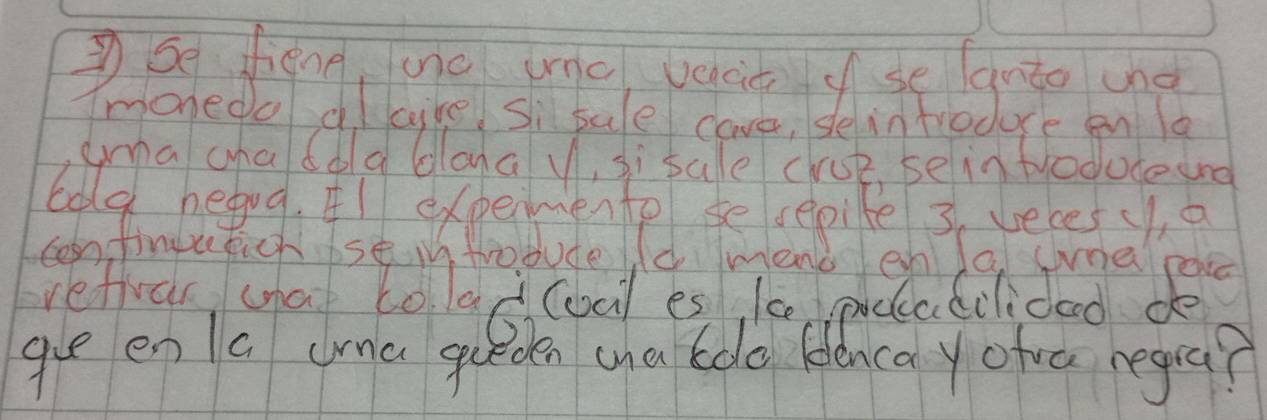 3) Se tiene una urna vacia y se lanza una
moneda al aire. Si sale cara, se introduce en la
urna una bola blanca y, si sale cruz, se introduce una
bola negra. El experimento se repite 3 veces y, a
continuación se introduce la mano en la urna para
retirar una bola ¿Cual es la probabilidad de
que en la urna queden una bola blanca y otra negra?